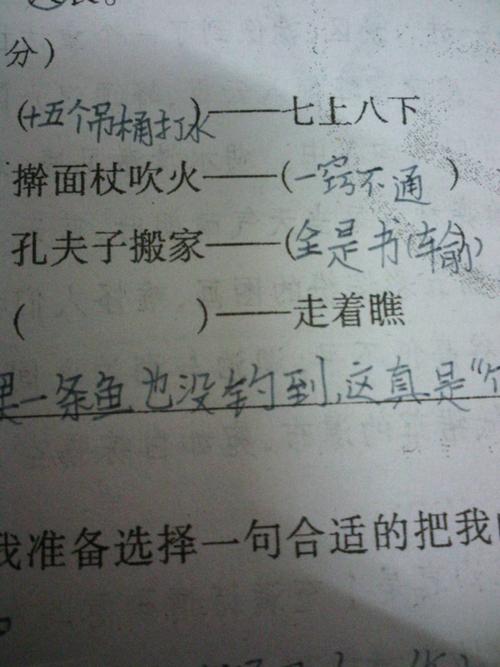 分)
(十五个吊桶打水)——七上八下
擀面杖吹火——(一窍不通)
孔夫子搬家——(全是书(输))
(          )——走着瞧
一条鱼也没钓到,这真是“
我准备选择一句合适的把我